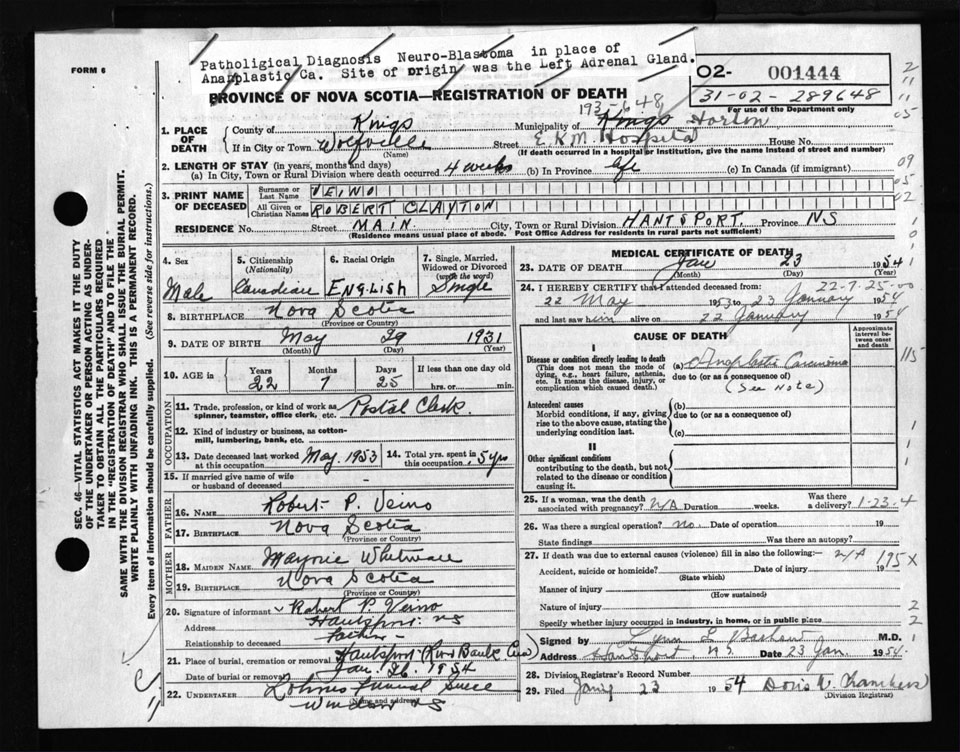 FORM 6
Patholigical Diagnosis Neuro-Blastoma in place of
Anapplastic Ca. Site of origin was the Left Adrenal Gland.
O2- 001444
31-02-289648
For use of the Department only
PROVINCE OF NOVA SCOTIA—REGISTRATION OF DEATH
193-648
1. PLACE OF DEATH
County of Kings Municipality of Kings Horton
If in City or Town Wolfville Street E.K.M. Hospital House No.
(Name) (If death occurred in a hospital or institution, give the name instead of street and number)
2. LENGTH OF STAY (in years, months and days)
(a) In City, Town or Rural Division where death occurred 4 weeks (b) In Province life (c) In Canada (if immigrant)
3. PRINT NAME OF DECEASED
Surname or Last Name VEINO
All Given or Christian Names ROBERT CLAYTON
RESIDENCE No. Street MAIN City, Town or Rural Division HANTSPORT Province NS
(Residence means usual place of abode. Post Office Address for residents in rural parts not sufficient)
4. Sex Male
5. Citizenship (Nationality) Canadian
6. Racial Origin ENGLISH
7. Single, Married, Widowed or Divorced (write the word) Single
8. BIRTHPLACE Nova Scotia
(Province or Country)
9. DATE OF BIRTH May 29 1931
(Month) (Day) (Year)
10. AGE in Years 22 Months 7 Days 25 If less than one day
hrs. or min.
OCCUPATION
11. Trade, profession, or kind of work as spinner, teamster, office clerk, etc. Postal Clerk.
12. Kind of industry or business, as cotton-mill, lumbering, bank, etc.
13. Date deceased last worked at this occupation May, 1953
14. Total yrs. spent in this occupation 5 yrs
15. If married give name of wife or husband of deceased
FATHER
16. NAME Robert P. Veino
17. BIRTHPLACE Nova Scotia
(Province or Country)
MOTHER
18. MAIDEN NAME
19. BIRTHPLACE Nova Scotia
(Province or Country)
20. Signature of informant Robert P. Veino
Address Hantsport. NS
Relationship to deceased Father
21. Place of burial, cremation or removal Hantsport
Date of burial or removal Jan. 26 1954
22. UNDERTAKER Funeral
Windsor NS
(Name and address)
MEDICAL CERTIFICATE OF DEATH
23. DATE OF DEATH Jan 23 1954
(Month) (Day) (Year)
24. I HEREBY CERTIFY that I attended deceased from 22-7-25-00
22 May 1953 to 23 January 1954
and last saw him alive on 22 January 1954
CAUSE OF DEATH
Approximate interval between onset and death
I
Disease or condition directly leading to death
(This does not mean the mode of dying, e.g., heart failure, asthenia, etc. It means the disease, injury, or complication which caused death.)
(a) Anaplastic Carcinoma
due to (or as a consequence of)
(See Note)
115
Antecedent causes
Morbid conditions, if any, giving rise to the above cause, stating the underlying condition last.
(b)
due to (or as a consequence of)
(c)
II
Other significant conditions contributing to the death, but not related to the disease or condition causing it.
25. If a woman, was the death associated with pregnancy? N/A Duration weeks. Was there a delivery? 1-23-4
26. Was there a surgical operation? no Date of operation 19
State findings Was there an autopsy?
27. If death was due to external causes (violence) fill in also the following:— N/A 195X
Accident, suicide or homicide? Date of injury 19
(State which)
Manner of injury
(How sustained)
Nature of injury
Specify whether injury occurred in industry, in home, or in public place
Signed by M.D.
Address Hantsport, N.S. Date 23 Jan 1954.
28. Division Registrar's Record Number
29. Filed Jany 23 1954 Doris V. Chambers
(Division Registrar)
SEC. 46—VITAL STATISTICS ACT MAKES IT THE DUTY
OF THE UNDERTAKER OR PERSON ACTING AS UNDER-
TAKER TO OBTAIN ALL THE PARTICULARS REQUIRED
IN THE "REGISTRATION OF DEATH" AND TO FILE THE
SAME WITH THE DIVISION REGISTRAR WHO SHALL ISSUE THE BURIAL PERMIT.
WRITE PLAINLY WITH UNFADING INK. THIS IS A PERMANENT RECORD.
Every item of information should be carefully supplied. (See reverse side for instructions.)